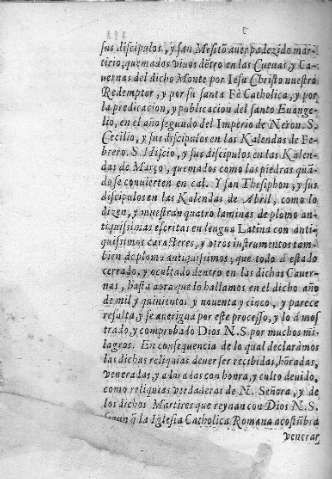 sus discipulos, y san Mesitõ auer padezido mar-
tirio, quemados viuos dẽtro en las Cueuas, y Ca-
uernas del dicho Monte por Iesu Christo nuestro
Redemptor, y por su santa Fè Catholica, y por
la predicacion, y publicacion del santo Euange-
lio, en el año segundo del Imperio de Neron. S.
Cecilio, y sus discipulos en las Kalendas de Fe-
brero. S. Idiscio, y sus discipulos en las Kalen-
das de Março, quemados como las piedras quã-
do se conuierten en cal. Y san Thesiphon, y sus
discipulos en las Kalendas de Abril, como lo
dizen, y muestran quatro laminas de plomo an-
tiquissimas escritas en lengua Latina con anti-
quissimos caracteres, y otros instrumentos tam-
bien de plomo antiquissimos, que todo à estado
cerrado, y ocultado dentro en las dichas Cauer-
nas, hasta aora que lo hallamos en el dicho año
de mil y quinientos y nouenta y cinco, y parece
resulta, y se auerigua por este processo, y lo à mos
trado, y comprobado Dios N.S. por muchos mi-
lagros. En consequencia de lo qual declaramos
las dichas reliquias deuer ser recibidas, hõradas,
veneradas, y adoradas con honra, y culto deuido,
como reliquias verdaderas de N. Señora, y de
los dichos Martires que reynan con Dios N.S.
segun q̃ la Iglesia Catholica Romana acostũbra
venerar